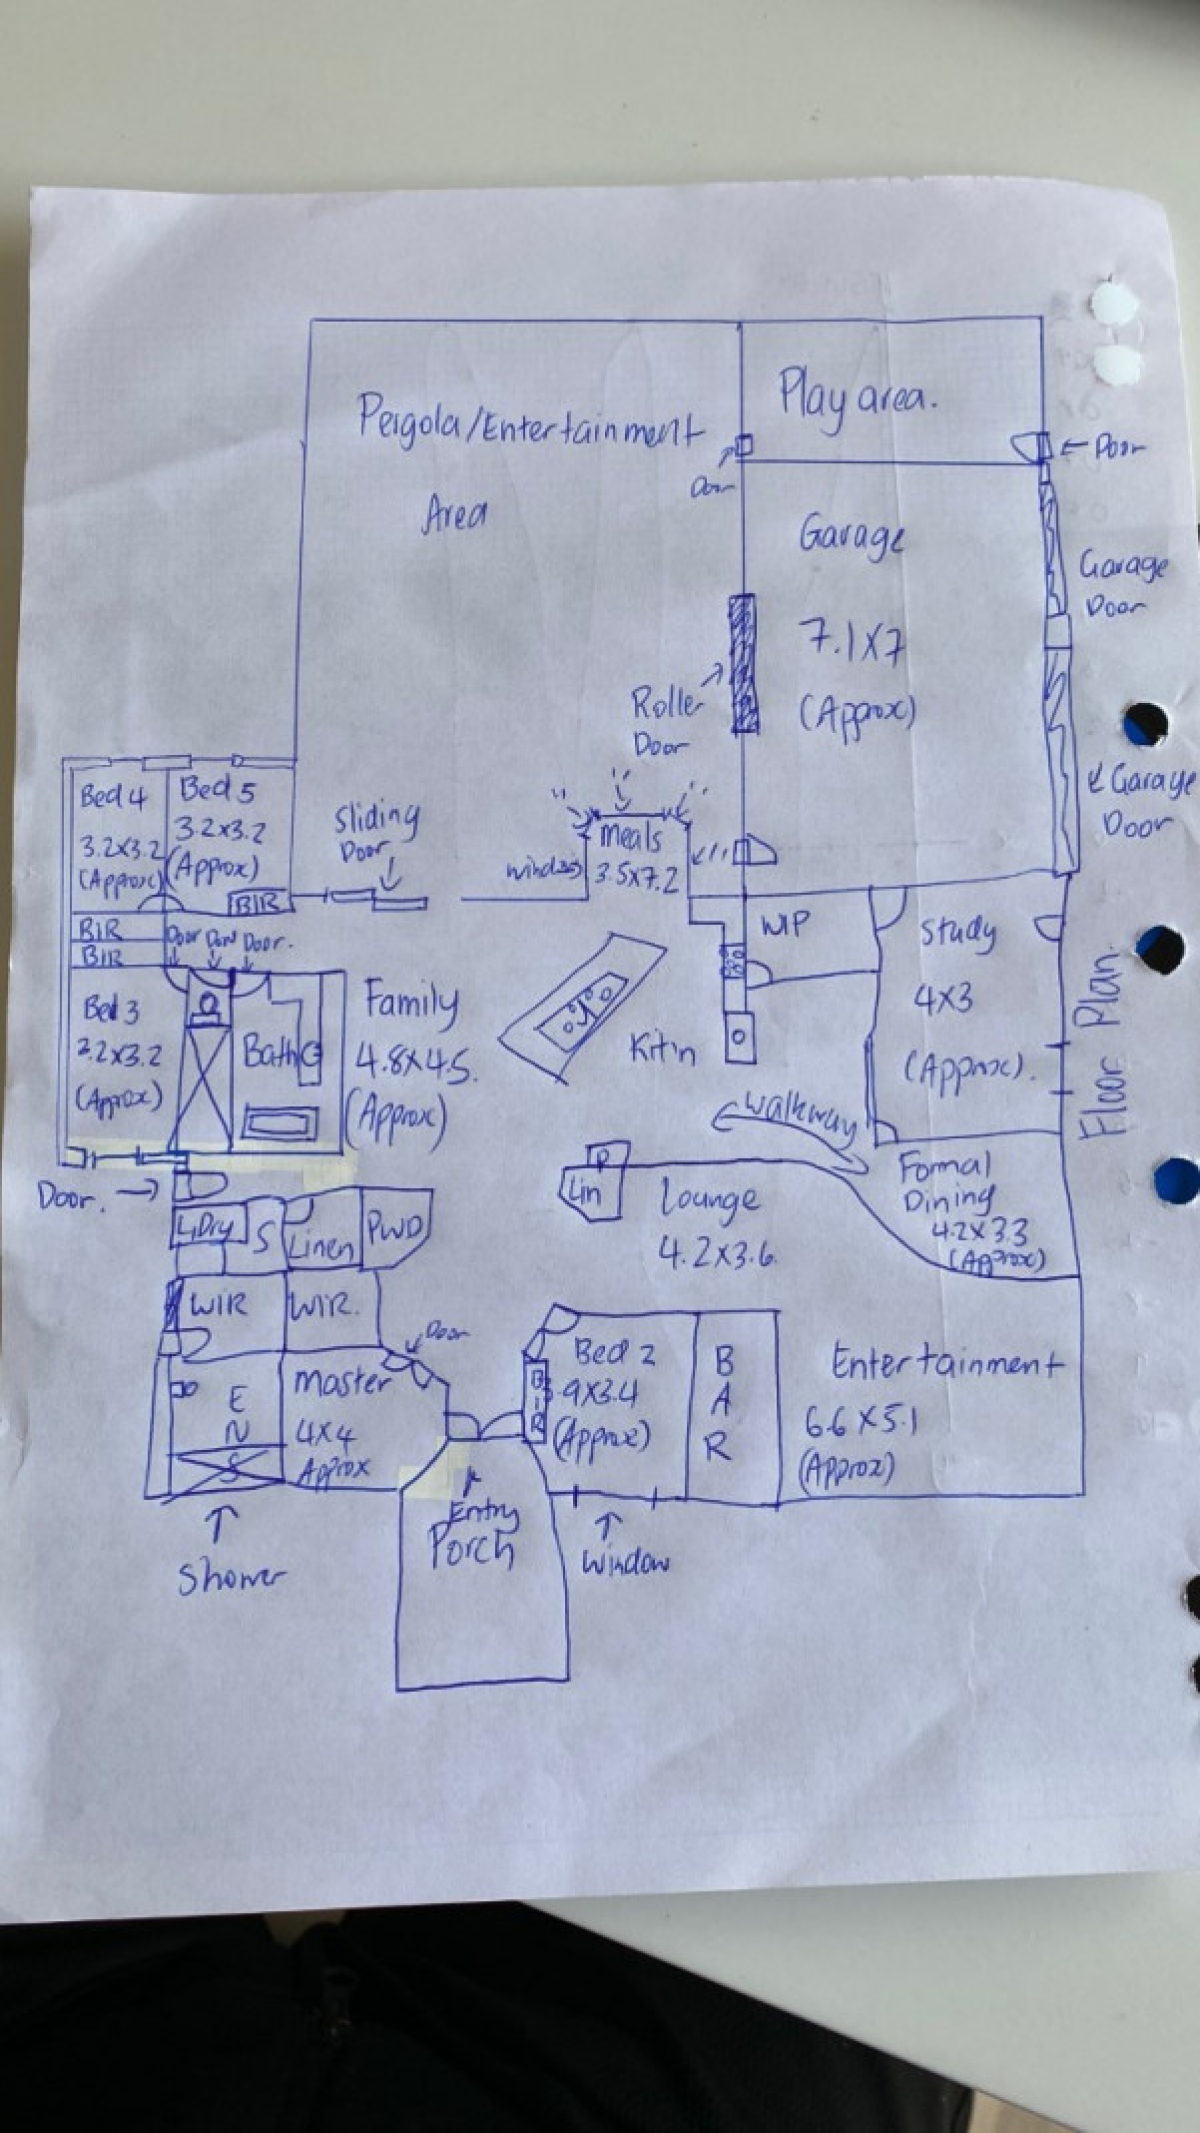 Pergola/Entertainment
Area
Play area.
Door
← Door
Garage
7.1x7
(Approx)
Garage
Door
Roller
Door
Garage
Door
Bed 4
3.2x3.2
(Approx)
Bed 5
3.2x3.2
(Approx)
BIR
Sliding
Door
window
Meals
3.5x7.2
BIR
BIR
Door Door Door.
WIP
Study
4x3
(Approx).
Floor Plan.
Bed 3
3.2x3.2
(Approx)
Bath
Family
4.8x4.5.
(Approx)
Kit'n
walkway
Door. →
L'Dry
S
Linen
PWD
P
Lin
Lounge
4.2x3.6.
Formal
Dining
4.2x3.3
(Approx)
WIR
WIR.
Door
E
N
S
Master
4x4
Approx
B
I
R
Bed 2
3.9x3.4
(Approx)
B
A
R
Entertainment
6.6x5.1
(Approx)
Shower
Entry
Porch
Window